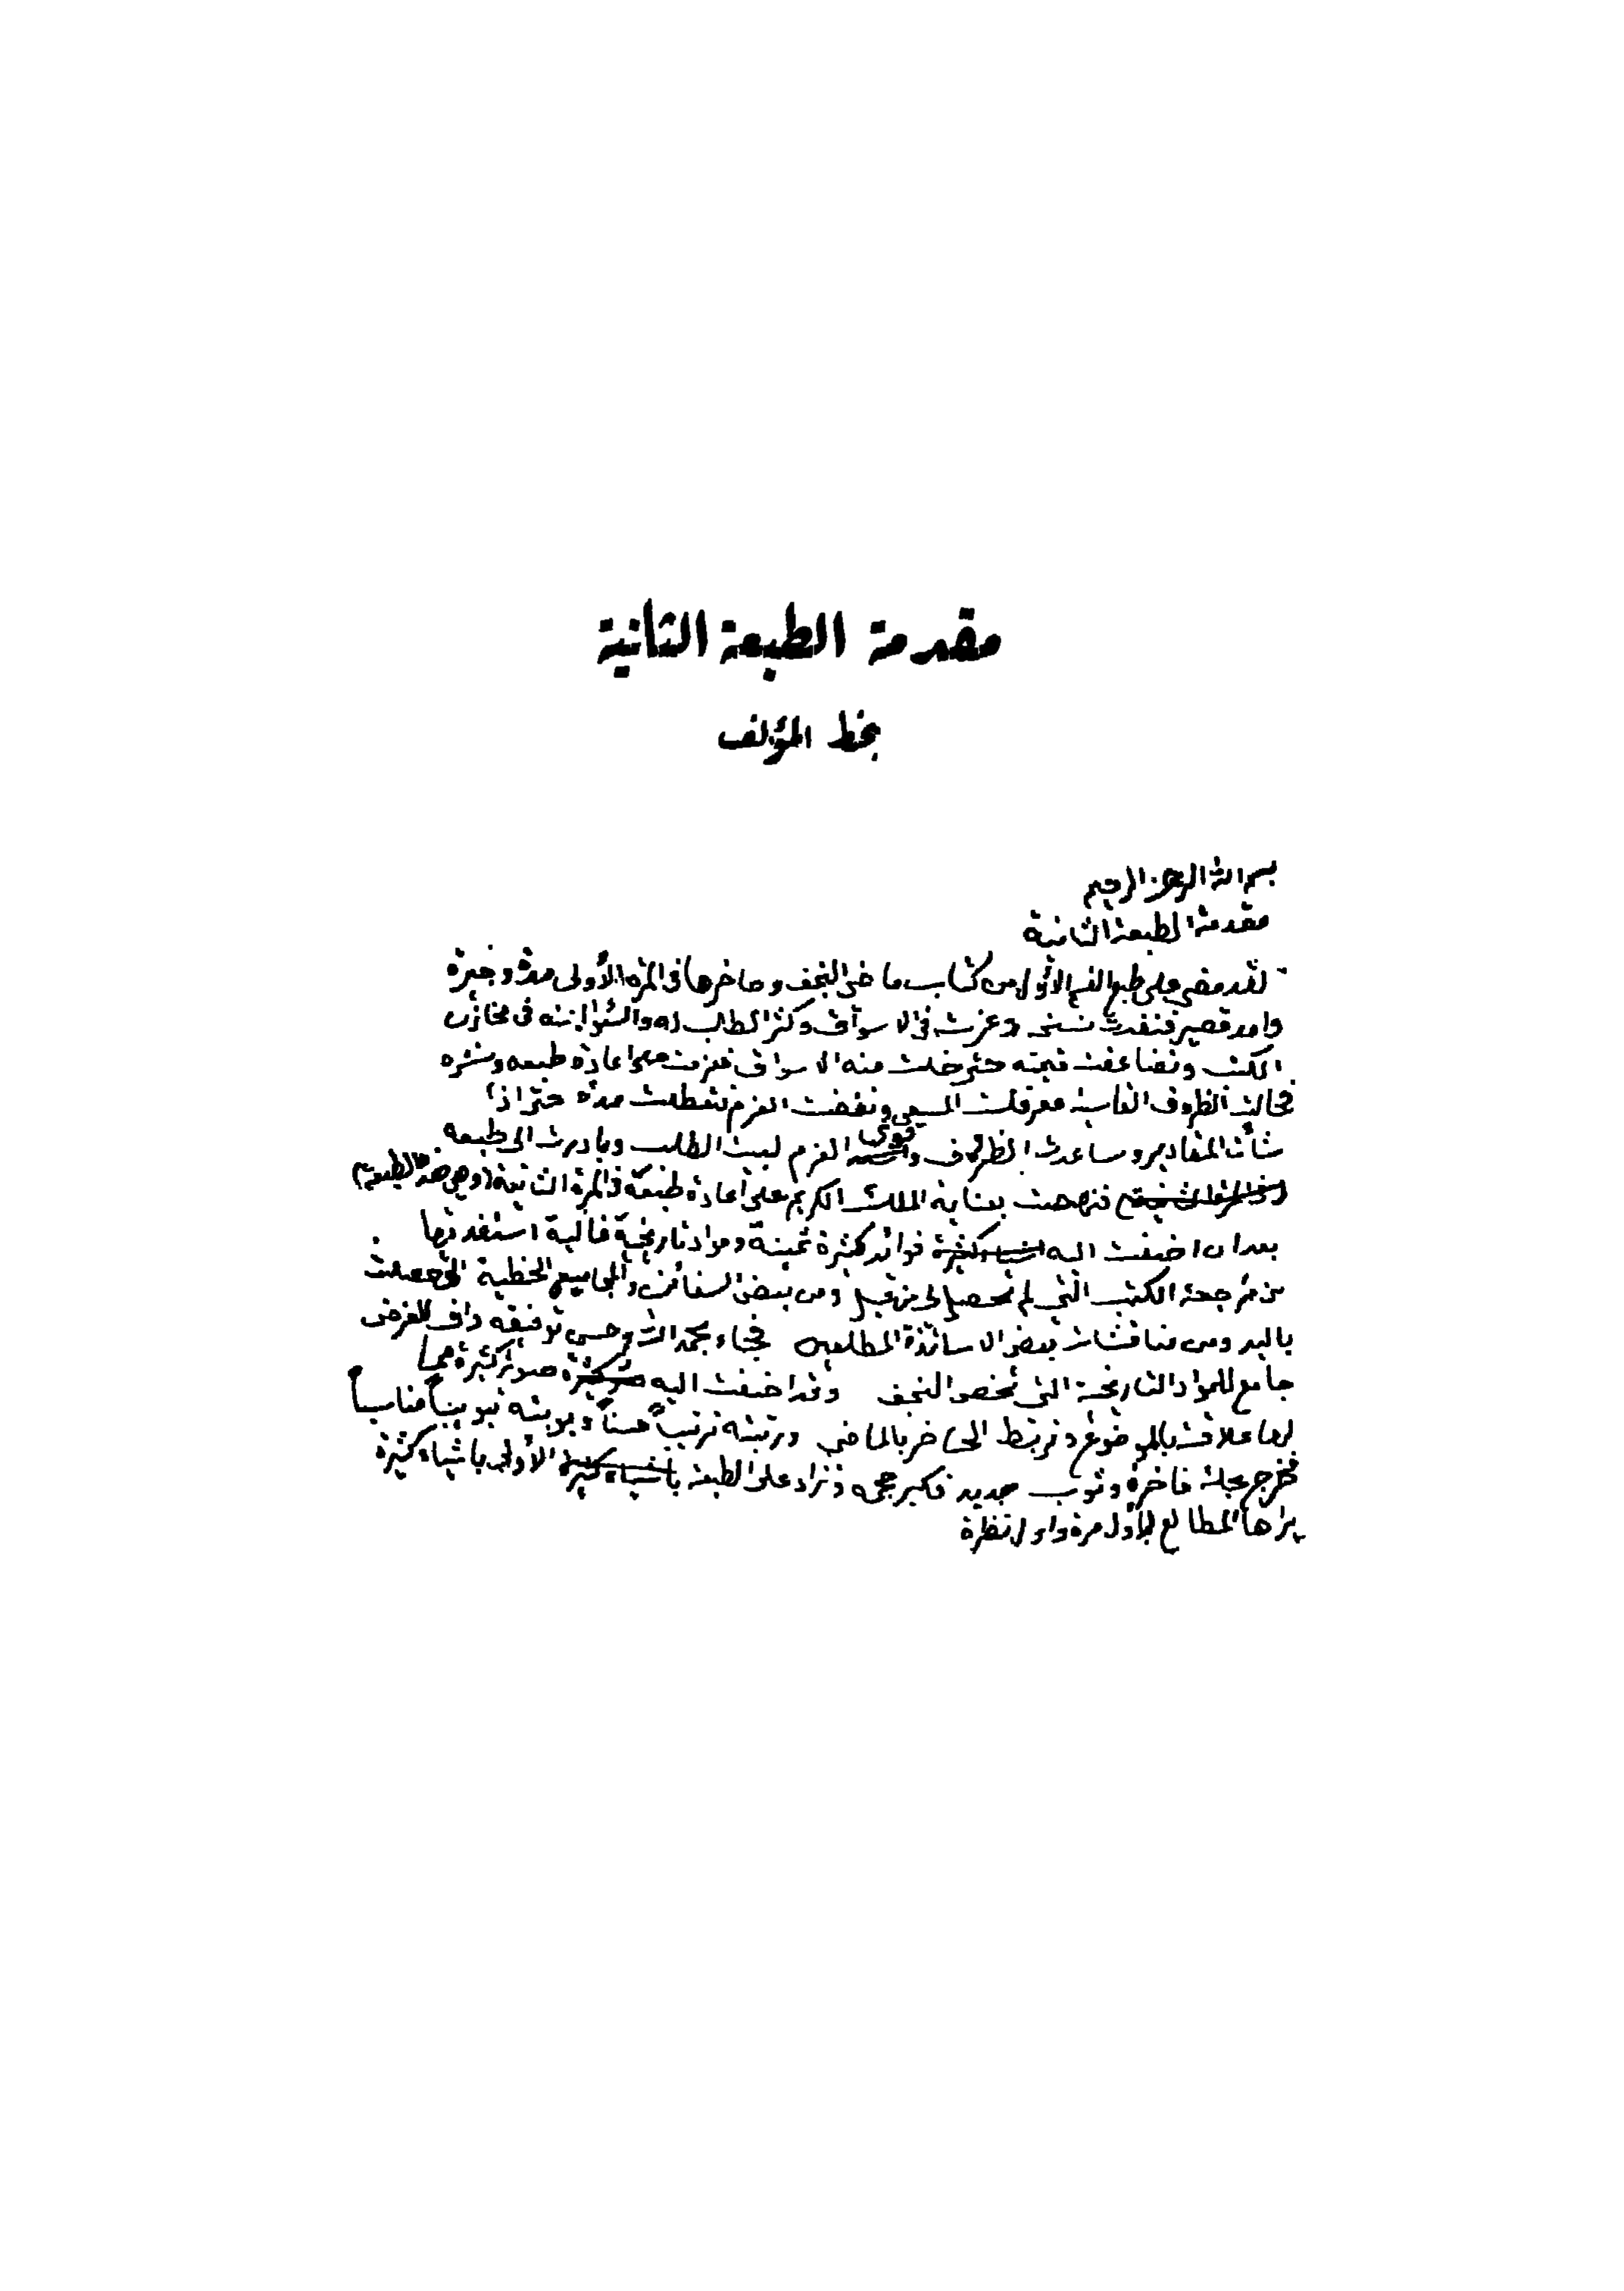 مقدمة الطبعة الثانية
بخط المؤلف
بسم الله الرحمن الرحيم
مقدمة الطبعة الثانية
لقد مضى على طبع القسم الأول من كتاب ماضي النجف وحاضرها في المرة الأولى مدة وجيزة
وامد قصير فنفدت نسخه وعزت في الاسواق وكثر الطلب له والسؤال عنه في مخازن
الكتب وتضاعفت قيمته حتى خلت منه الاسواق فعزمت على اعادة طبعه ونشره
فحالت الظروف القاسية فعرقلت السعي ونقضت العزم فتعطلت مدة حتى اذا
شائت المقادير وساعدت الظروف وقوي العزم لبيت الطلب وبادرت الى طبعه
فنهضت بعناية الملك الكريم على اعادة طبعه في المرة الثانية (وهي هذه الطبعة)
بعد ان اضفت اليه فوائد كثيرة ثمينة ومواد تاريخية غالية استفدتها
من مراجعة الكتب التي لم تحصل لي من قبل ومن بعض السفائن والمجاميع الخطية التي حصلت
باليد ومن مناقشات بعض الاساتذة المطلعين فجاء بحمد الله وحسن توفيقه واف للغرض
جامع للمواد التاريخية التي تخص النجف وقد اضفت اليه صور كثيرة مما
لها علاقة بالموضوع وتربط الحاضر بالماضي ورتبته ترتيباً حسناً وبوبته تبويباً مناسباً
فخرج بحلة فاخرة وثوب جديد فكبر حجمه وزاد على الطبعة الأولى باشياء كثيرة
يراها المطالع لأول مرة واول نظرة